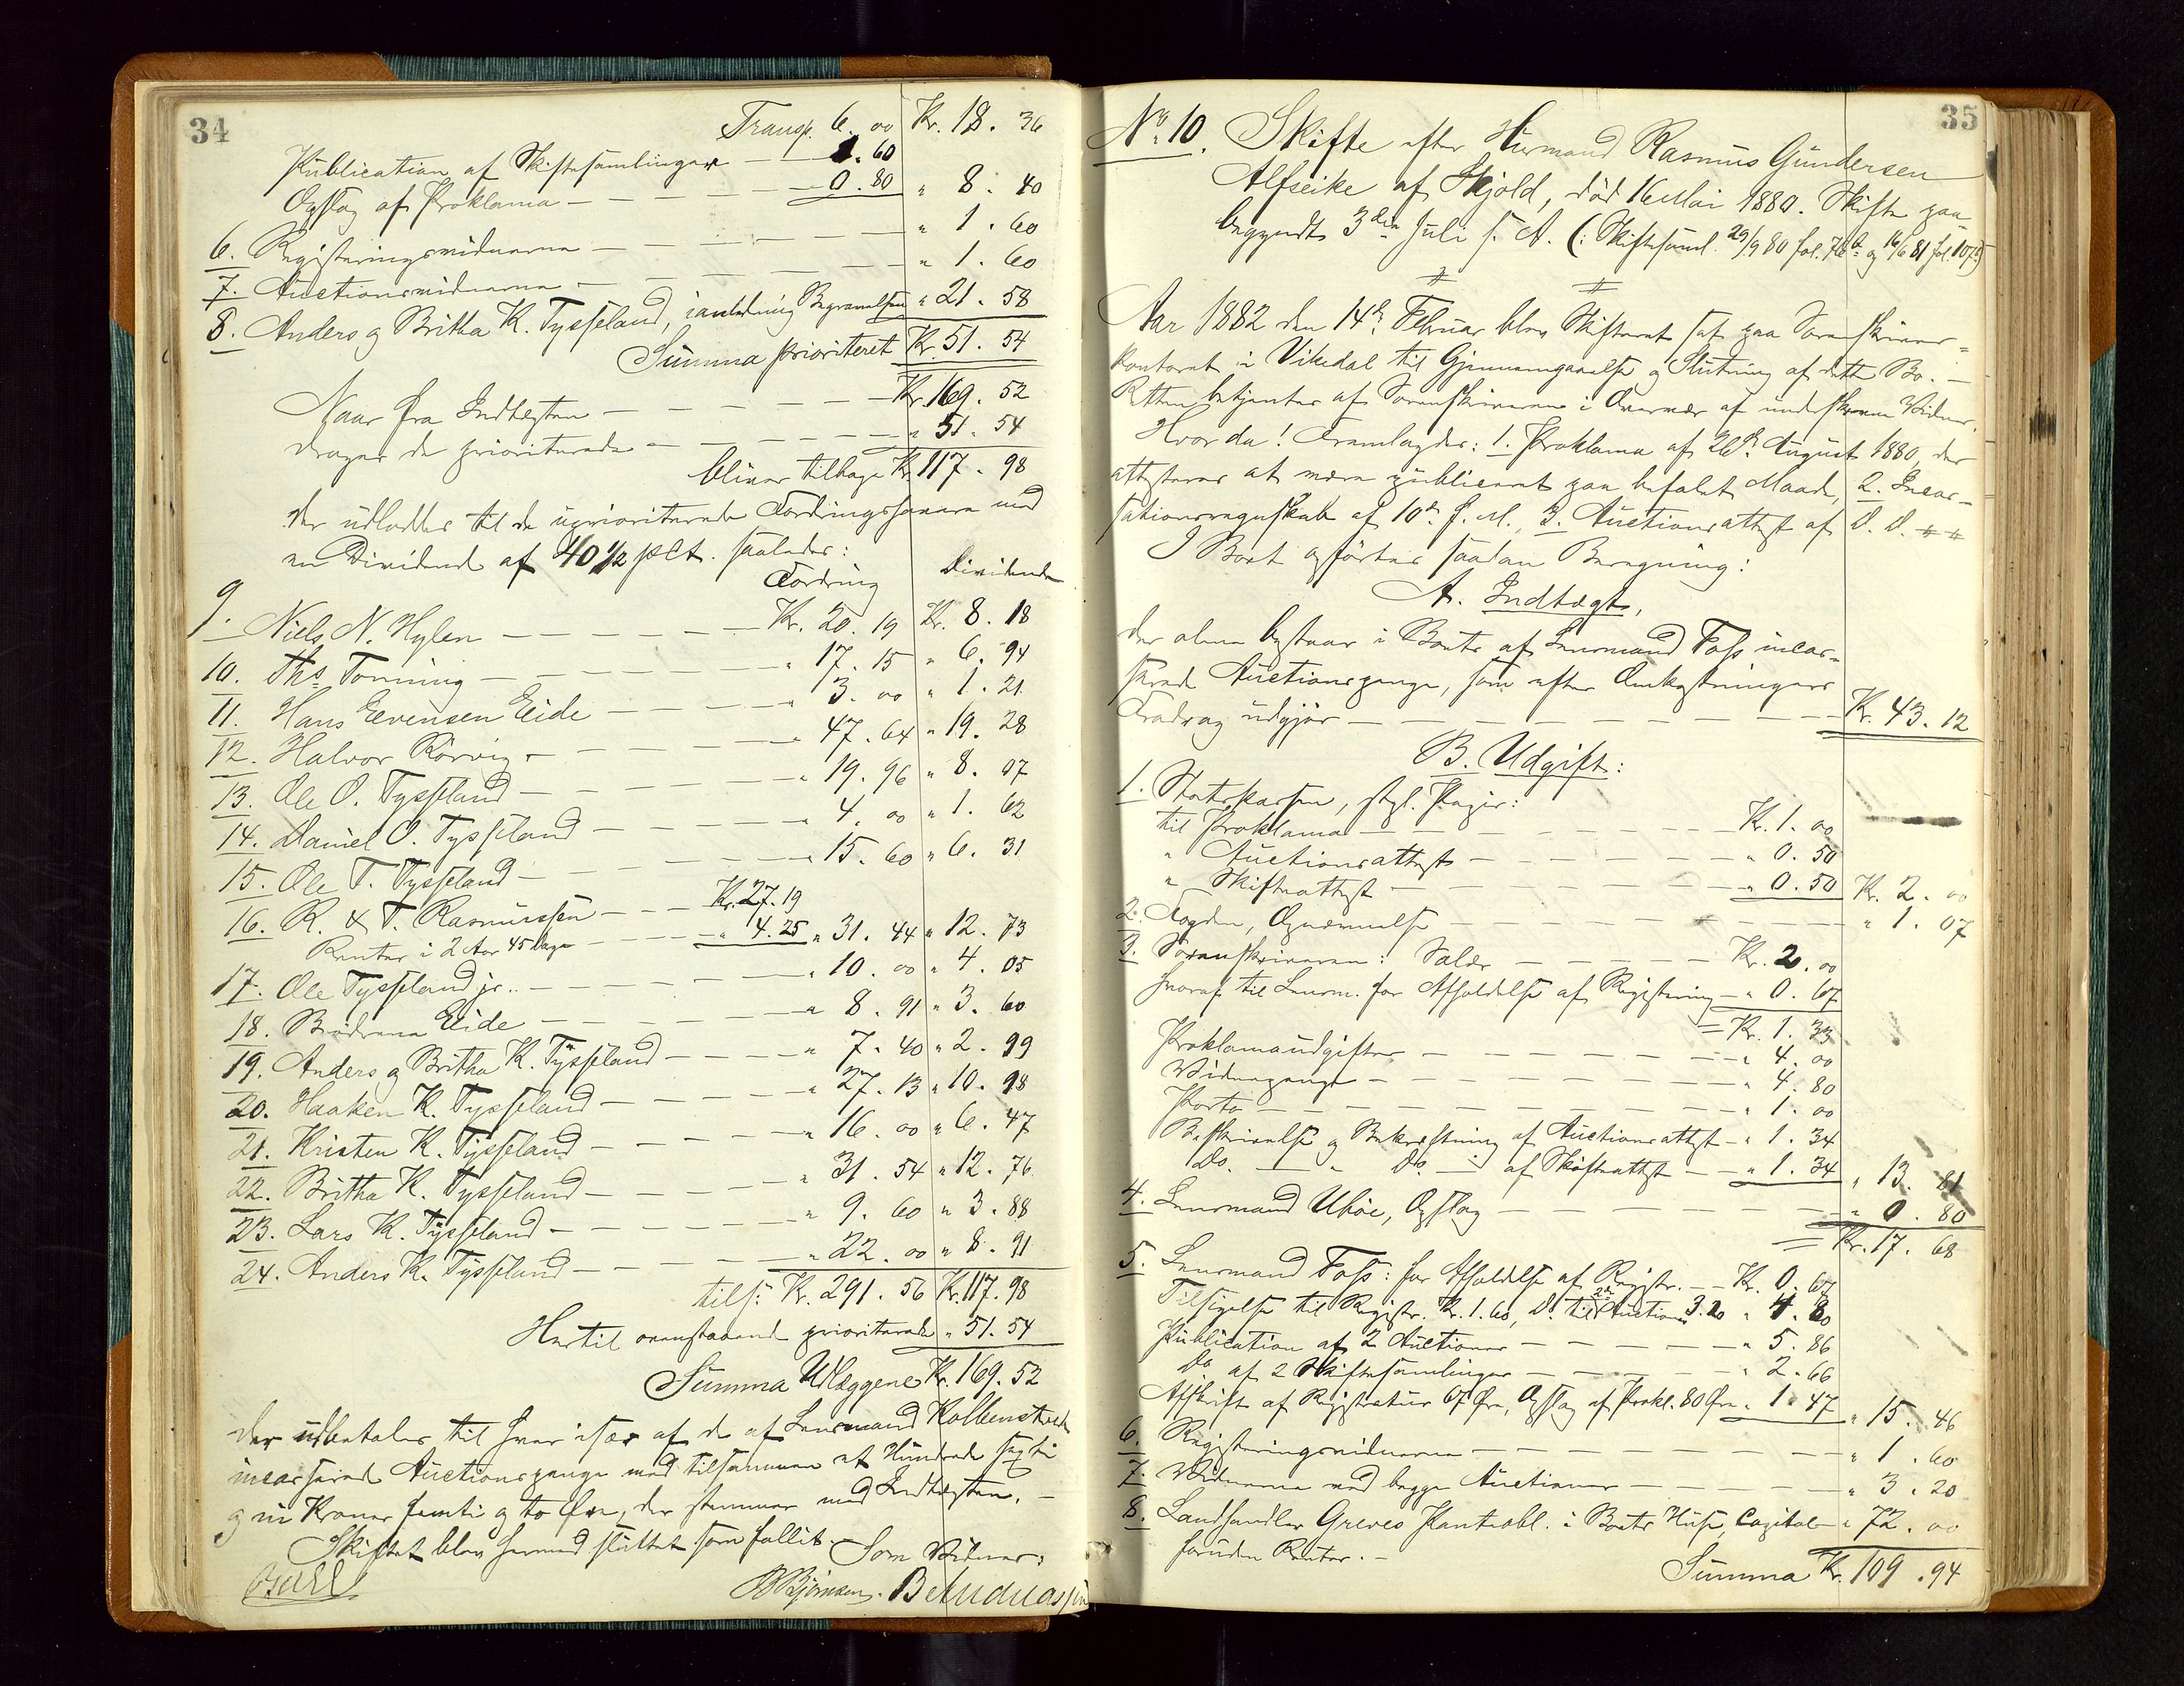 34
Transp. 6. 00 Kr. 18. 36
Publication af Skiftesamlingen — 1. 60
Opslag af Proklama — — — — 0. 80 " 8. 40
6. Registeringsvidnerne — — — — " 1. 60
7. Auctionsvidnerne — — — — " 1. 60
8. Anders og Britha K. Tysseland, i anledning Begravelsen " 21. 58
Summa prioriteret Kr. 51. 54
Naar fra Indtægten — — — — Kr. 169. 52
drages de prioriterede — — — — " 51. 54
bliver tilbage Kr. 117. 98
der udlodles til de uprioriterede Fordringshavere med
en Dividende af 40 1/2 pCt. saaledes:
Fordring Dividende
9. Niels N. Hylen — — — — Kr. 20. 19 Kr. 8. 18
10. Ths. Torning — — — — " 17. 15 " 6. 94
11. Hans Evensen Eide — — — " 3. 00 " 1. 21
12. Halvor Rörvig — — — — " 47. 64 " 19. 28
13. Ole O. Tysseland — — — — " 19. 96 " 8. 07
14. Daniel O. Tysseland — — — " 4. 00 " 1. 62
15. Ole T. Tysseland — — — — " 15. 60 " 6. 31
16. R. & T. Rasmussen — — Kr. 27. 19
Renter i 2 Aar 45 Dage — — " 4. 25 " 31. 44 " 12. 73
17. Ole Tysseland jr. — — — — " 10. 00 " 4. 05
18. Brödrene Eide — — — — " 8. 91 " 3. 60
19. Anders og Britha K. Tysseland — — " 7. 40 " 2. 99
20. Haaken K. Tysseland — — — " 27. 13 " 10. 98
21. Kristen K. Tysseland — — — " 16. 00 " 6. 47
22. Britha K. Tysseland — — — " 31. 54 " 12. 76
23. Lars K. Tysseland — — — — " 9. 60 " 3. 88
24. Anders K. Tysseland — — — " 22. 00 " 8. 91
tils: Kr. 291. 56 Kr. 117. 98
Hertil ovenstaaende prioriterede " 51. 54
Summa Udlæggene Kr. 169. 52
der udbetales til hver især af de af Lensmand Kolbenstvedt
incasserede Auctionspenge med tilsammen et Hundrede sexti
og ni Kroner femti og to Öre, der stemmer med Indtægten. —
Skiftet blev hermed sluttet som fallit. Som Vidner:
BBjörnsen. B Andreassen
35
No. 10. Skifte efter Huusmand Rasmus Gundersen
Alfseike af Skjold, död 16 Mai 1880. Skifte paa-
begyndt 3die Juli s. A. (: Skiftesaml. 29/9 80 fol. 76b og 16/6 81 fol. 107b)
Aar 1882 den 14de Februar blev Skifteret sat paa Sorenskriver-
kontoret i Vikedal til Gjennemgaaelse og Slutning af dette Bo. —
Retten betjentes af Sorenskriveren i Overvær af underskrevne Vidner.
Hvor da! Fremlagdes: 1. Proklama af 20de August 1880, der
attesteres at være publiceret paa befalet Maade, 2. Incas-
sationsregnskab af 10de d. M., 3. Auctionsattest af D. D.
I Boet opförtes saadan Beregning:
A. Indtægt,
der alene bestaar i Boets af Lensmand Foss incas-
serede Auctionspenge, som efter Omkostningers
Fradrag udgjör — — — — — Kr. 43. 12
B. Udgift:
1. Statskassen, stpl. Papir:
til Proklama — — — — Kr. 1. 00
" Auctionsattest — — — — " 0. 50
" Skifteattest — — — — " 0. 50 Kr. 2. 00
2. Fogden, Opnævnelse — — — — " 1. 07
3. Sorenskriveren: Salær — — — Kr. 2. 00
hvoraf til Lensm. for Afholdelse af Registering — " 0. 67
= Kr. 1. 33
Proklamaudgifter — — — — " 4. 00
Vidnepenge — — — — " 4. 80
Porto — — — — " 1. 00
Beskrivelse og Bekræftning af Auctionsattest — " 1. 34
Do. — " Do. — af Skifteattest — — " 1. 34 " 13. 81
4. Lensmand Uböe, Opslag — — — — " 0. 80
= Kr. 17. 68
5. Lensmand Foss: for Afholdelse af Registr. — Kr. 0. 67
Tilsigelse til Registr. Kr. 1.60, Do. til 2de Auctioner 3.20 " 4. 80
Publication af 2 Auctioner — — — — " 5. 86
Do. af 2 Skiftesamlinger — — — — " 2. 66
Afskrift af Registratur 67 Öre, Opslag af Prokl. 80 Öre " 1. 47 " 15. 46
6. Registeringsvidnerne — — — — " 1. 60
7. Vidnerne ved begge Auctioner — — — — " 3. 20
8. Landhandler Greves Panteobl. i Boets Huse, Capital — " 72. 00
foruden Renter. —
Summa Kr. 109. 94